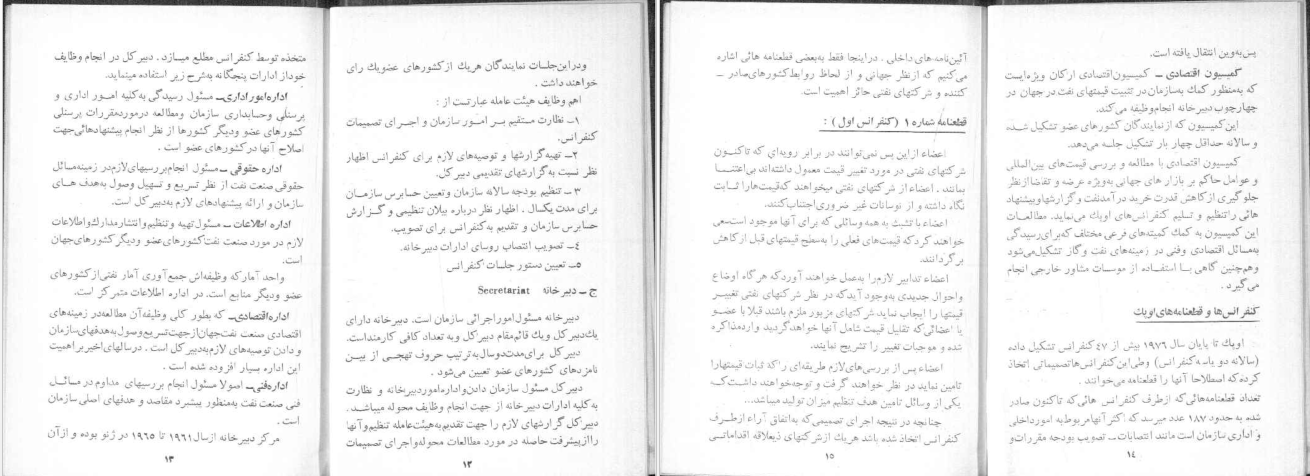 ودراین‌جلسات نمایندگان هریك از کشورهای عضویك رای
خواهند داشت .
اهم وظایف هیئت عامله عبارتست از :
۱ـ نظارت مستقیم بـر امـور سازمان و اجـرای تصمیمات
کنفرانس.
۲ـ تهیه گزارشها و توصیه‌های لازم برای کنفرانس اظهار
نظر نسبت به گزارشهای تقدیمی دبیرکل.
۳ ـ تنظیم بودجه سالانه سازمان وتعیین حسابرس سازمـان
برای مدت یکسال . اظهار نظر درباره بیلان تنظیمی و گـزارش
حسابرس سازمان و تقدیم به کنفرانس برای تصویب.
٤ـ تصویب انتصاب روسای ادارات دبیرخانه.
٥ـ تعیین دستور جلسات کنفرانس
ج ـ دبیرخانه Secretariat
دبیرخانه مسئول اموراجرائی سازمان است. دبیرخانه دارای
یك‌دبیرکل ویك قائم‌مقام دبیرکل و به تعداد کافی کارمنداست.
دبیرکل برای‌مدت‌دوسال به‌ترتیب حروف تهجـی از بیـن
نامزدهای کشورهای عضو تعیین می‌شود .
دبیرکل مسئول سازمان دادن‌واداره‌اموردبیرخانه و نظارت
به کلیه ادارات دبیرخانه از جهت انجام وظایف محوله میباشد.
دبیرکل گزارشهای لازم را جهت تقدیم‌به‌هیئت‌عامله تنظیم‌وآنها
رااز‌پیشرفت حاصله در مورد مطالعات محوله‌واجرای تصمیمات
۱۲
متخذه توسط کنفرانس مطلع میسازد . دبیرکل در انجام وظایف
خوداز ادارات پنجگانه به‌شرح زیر استفاده مینماید.
اداره‌اموراداری‌ـ مسئول رسیدگی به‌کلیه امـور اداری و
پرسنلی وحسابداری سازمان ومطالعه درموردمقررات پرسنلی
کشورهای عضو ودیگر کشورها از نظر انجام پیشنهادهائی‌جهت
اصلاح آنها در کشورهای عضو است .
اداره حقوقی ـ مسئول انجام بررسیهای‌لازم‌در زمینه‌مسائل
حقوقی صنعت نفت از نظر تسریع و تسهیل وصول به‌هدف هـای
سازمان و ارائه پیشنهادهای لازم به‌دبیرکل است.
اداره اطلاعات ـ مسئول تهیه وتنظیم‌وانتشارمدارك‌واطلاعات
لازم در مورد صنعت نفت‌کشورهای‌عضو ودیگر کشورهای‌جهان
است.
واحد آمارکه وظیفه‌اش جمع آوری آمار نفتی‌از کشورهای
عضو ودیگر منابع است. در اداره اطلاعات متمرکز است.
اداره‌اقتصادی‌ـ که‌بطور کلی وظیفه‌آن مطالعه‌در زمینه‌های
اقتصادی صنعت نفت‌جهان‌ازجهت‌تسریع‌وصول‌به‌هدفهای‌سازمان
و دادن توصیه‌های لازم به‌دبیرکل است . درسالهای اخیربراهمیت
این اداره بسیار افزوده شده است .
اداره‌فنی‌ـ اصولا مسئول انجام بررسیهای مداوم در مسائـل
فنی صنعت نفت به‌منظور پیشبرد مقاصد و هدفهای اصلی سازمان
است .
مرکز دبیرخانه ازسال۱۹٦۱ تا ۱۹٦٥ در ژنو بوده و ازآن
۱۳
پس‌به‌وین انتقال یافته است.
کمیسیون اقتصادی ـ کمیسیون‌اقتصادی ارکان ویژه‌ایست
که به‌منظور کمك به‌سازمان‌در تثبیت قیمتهای نفت‌در جهان در
چهارچوب دبیرخانه انجام‌وظیفه می‌کند.
این‌کمیسیون که ازنمایندگان کشورهای عضو تشکیل شـده
و سالانه حداقل چهار بار تشکیل جلسه می‌دهد.
کمیسیون اقتصادی با مطالعه و بررسی قیمت‌های بین‌المللی
و عوامل حاکم بر بازار های جهانی به‌ویژه عرضه و تقاضاازنظر
جلوگیری ازکاهش قدرت خرید درآمدنفت و گزارشهاوپیشنهاد
هائی راتنظیم و تسلیم کنفرانس‌های اوپك می‌نماید. مطالعـات
این کمیسیون به کمك کمیته‌های فرعی مختلف که‌برای‌رسیدگی
به‌مسائل اقتصادی وفنی در زمینه‌های نفت وگاز تشکیل‌می‌شود
وهم‌چنین گاهی بـا استفـاده از موسسات مشاور خارجی انجام
می‌گیرد .
کنفرانس‌ها و قطعنامه‌های اوپك
اوپك تا پایان سال ۱۹۷٦ بیش از ٤۷کنفرانس تشکیل داده
(سالانه دو یاسه‌کنفرانس) وطی‌این‌کنفرانس‌هاتصمیماتی اتخاذ
کرده‌که اصطلاحا آنها را قطعنامه می‌خوانند .
تعداد قطعنامه‌هائی‌که ازطرف کنفرانس هائی‌که تاکنون صادر
شده به حدود ۱۸۷ عدد میرسد که اکثر آنهامربوط‌به امورداخلی
و اداری سازمان است مانند انتصابات‌ـ تصویب بودجه مقررات‌و
۱٤
آئین‌نامه‌های داخلی . در اینجا فقط به‌بعضی قطعنامه هائی اشاره
می‌کنیم که ازنظر جهانی و از لحاظ روابط کشورهای‌صادر ـ
کننده و شرکتهای نفتی حائز اهمیت است.
قطعنامه شماره ۱ (کنفرانس اول) :
اعضاء ازاین پس نمی‌توانند در برابر رویه‌ای که تاکنـون
شرکتهای نفتی در مورد تغییر قیمت معمول داشته‌اند بی‌اعتنـا
بمانند . اعضاء از شرکتهای نفتی میخواهند که‌قیمت‌هارا ثـابت
نگاه داشته و از نوسانات غیر ضروری‌اجتناب‌کنند.
اعضاء با تشبث به همه وسائلی که برای آنها موجود است‌سعی
خواهند کرد‌که قیمت‌های فعلی را به‌سطح قیمتهای قبل ازکاهش
برگردانند.
اعضاء تدابیر لازم‌را به‌عمل خواهند آوردکه هرگاه اوضاع
واحوال جدیدی به‌وجود آیدکه در نظر شرکتهای نفتی تغییـر
قیمتها را ایجاب نماید شرکتهای مزبور ملزم باشند قبلا با عضـو
یا اعضائی‌که تقلیل قیمت شامل آنها خواهدگردید وارد‌مذاکره
شده و موجبات تغییر را تشریح نمایند.
اعضاء پس از بررسی‌های‌لازم طریقه‌ای را‌که ثبات قیمتهارا
تامین نماید در نظر خواهند گرفت و توجه‌خواهند داشت‌کـه
یکی از وسائل تامین هدف تنظیم میزان تولید میباشد...
چنانچه در نتیجه اجرای تصمیمی‌که به‌اتفاق آراء ازطرف
کنفرانس اتخاذ شده باشد هریك ازشرکتهای ذیعلاقه اقداماتـی
۱٥